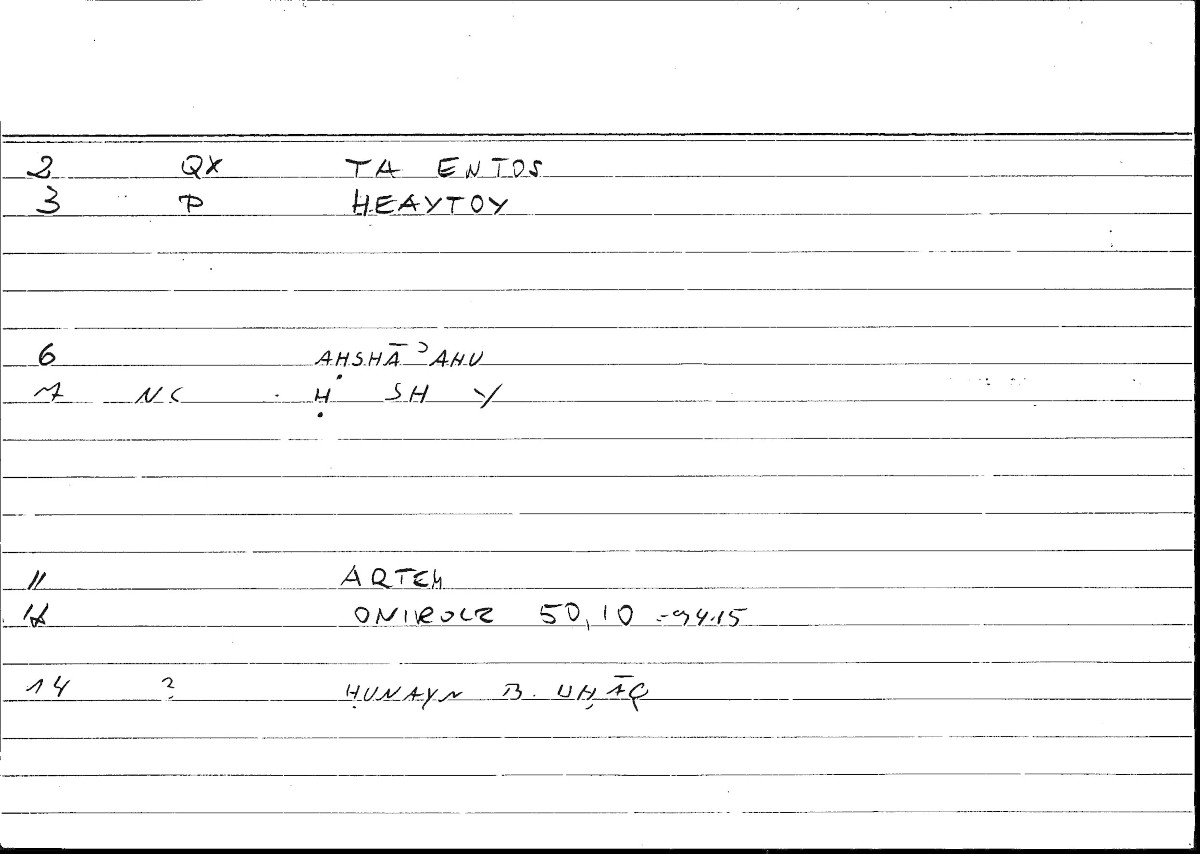 2 QX TA ENTOS
3 P HEAYTOY
6 AḤSHĀʾAHU
7 NC Ḥ SH Y
11 ARTEM
12 ONIROCR 50,10 -94.15
14 ? ḤUNAYN B. IIḤĀQ